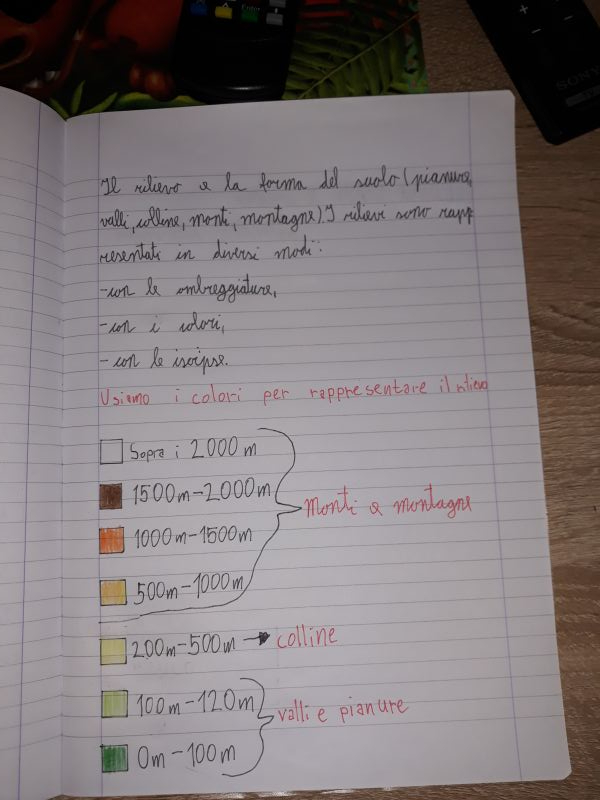 Enter
SONY
Il rilievo e la forma del suolo (pianure,
valli, colline, monti, montagne). I rilievi sono rapp
resentati in diversi modi:
-con le ombreggiature,
-con i colori,
-con le isoipse.
Usiamo i colori per rappresentare il rilievo
Sopra i 2000 m
1500m-2000m
1000m-1500m
monti e montagne
500m-1000m
200m-500m → colline
100m-120m
valli e pianure
0m-100m